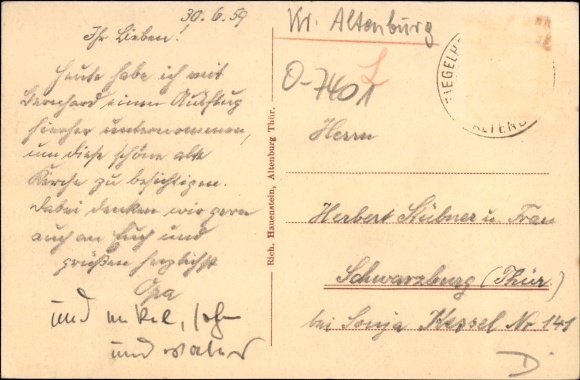 30.6.59
Ihr Lieben!
Heute habe ich mit
Bernhard einen Ausflug
hierher unternommen,
um diese schöne alte
Kirche zu besichtigen.
Dabei denken wir gern
auch an Euch und
grüßen herzlichst
Opa
und Enkel, Sohn
und
Rich. Hauenstein, Altenburg Thür.
Kr. Altenburg
O-7401
ZIEGELH
ALTENB
Herrn
Herbert Stübner u. Frau
Schwarzburg (Thür.)
bei Sonja Kessel Nr. 141
D